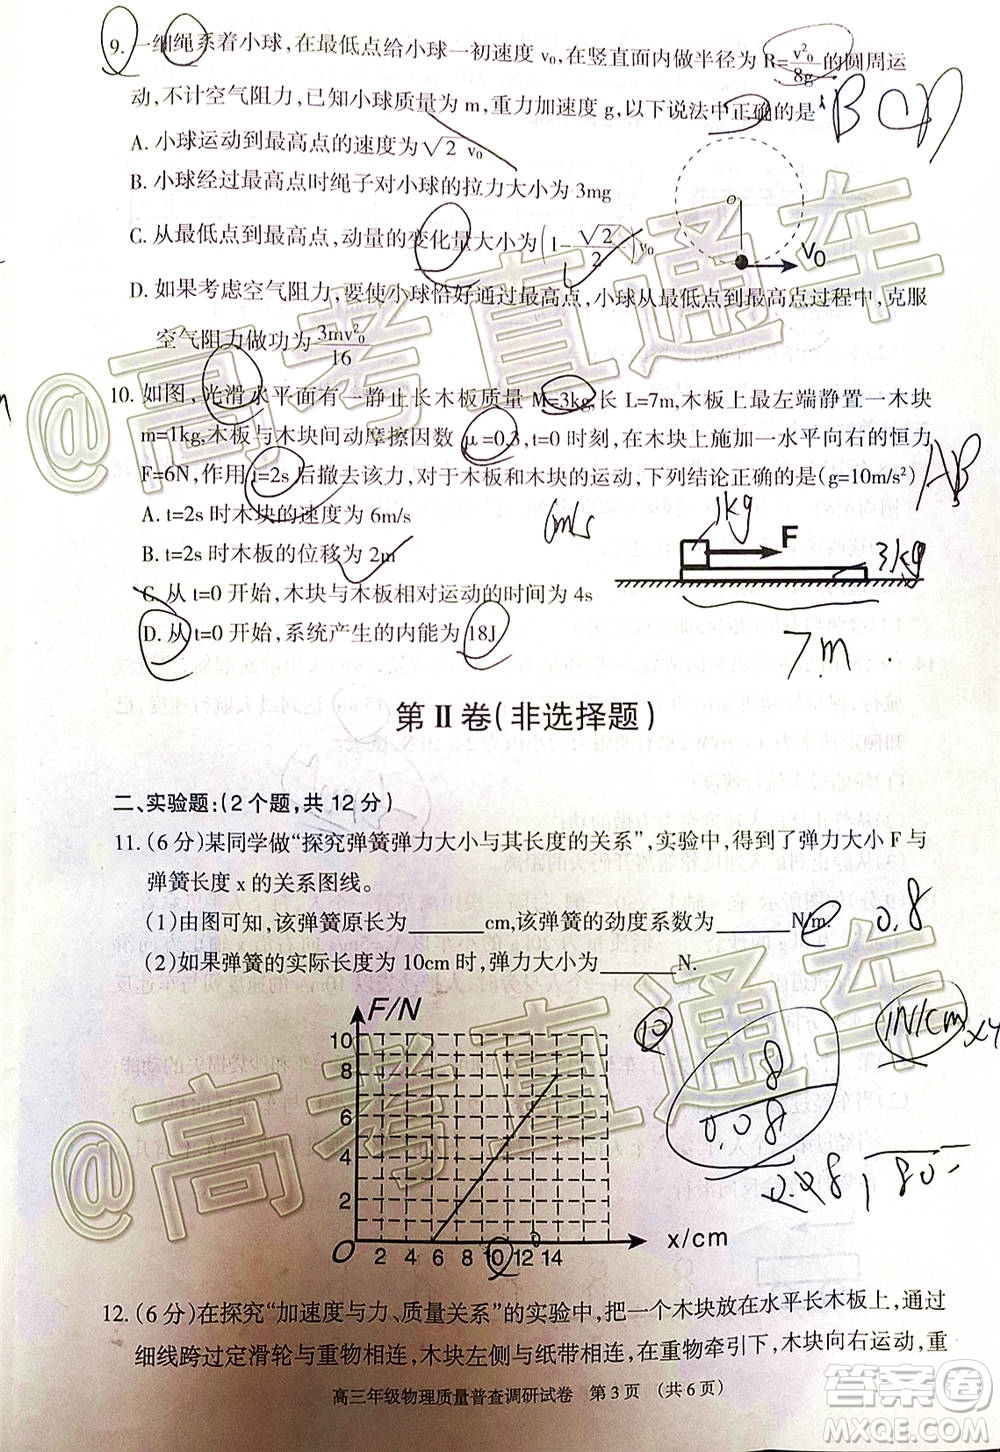 9. 一细绳系着小球,在最低点给小球一初速度 v₀,在竖直面内做半径为 R=v²₀/8g的圆周运
动,不计空气阻力,已知小球质量为 m,重力加速度 g,以下说法中正确的是
BCD
A. 小球运动到最高点的速度为√2 v₀
B. 小球经过最高点时绳子对小球的拉力大小为 3mg
C. 从最低点到最高点,动量的变化量大小为(1-√2/2)v₀
o
V₀
D. 如果考虑空气阻力,要使小球恰好通过最高点,小球从最低点到最高点过程中,克服
空气阻力做功为3mv²₀/16
10. 如图,光滑水平面有一静止长木板质量 M=3kg,长 L=7m,木板上最左端静置一木块
m=1kg,木板与木块间动摩擦因数 μ=0.3,t=0 时刻,在木块上施加一水平向右的恒力
F=6N,作用 t=2s 后撤去该力,对于木板和木块的运动,下列结论正确的是(g=10m/s²)
AB
A. t=2s 时木块的速度为 6m/s
6m/s
1kg
F
B. t=2s 时木板的位移为 2m
3kg
C. 从 t=0 开始,木块与木板相对运动的时间为 4s
D. 从 t=0 开始,系统产生的内能为 18J
7m
第 II 卷(非选择题)
二、实验题:(2 个题,共 12 分)
11. (6 分)某同学做“探究弹簧弹力大小与其长度的关系”,实验中,得到了弹力大小 F 与
弹簧长度 x 的关系图线。
(1)由图可知,该弹簧原长为______cm,该弹簧的劲度系数为______N/m.
0.8
(2)如果弹簧的实际长度为 10cm 时,弹力大小为______N.
F/N
10
8
6
4
2
O
2 4 6 8 10 12 14
x/cm
10
8
0.08
1N/cm
x4
80
12. (6 分)在探究“加速度与力、质量关系”的实验中,把一个木块放在水平长木板上,通过
细线跨过定滑轮与重物相连,木块左侧与纸带相连,在重物牵引下,木块向右运动,重
高三年级物理质量普查调研试卷 第 3 页 (共 6 页)
@高考直通车
@高考直通车
答案圈
MXQE.COM